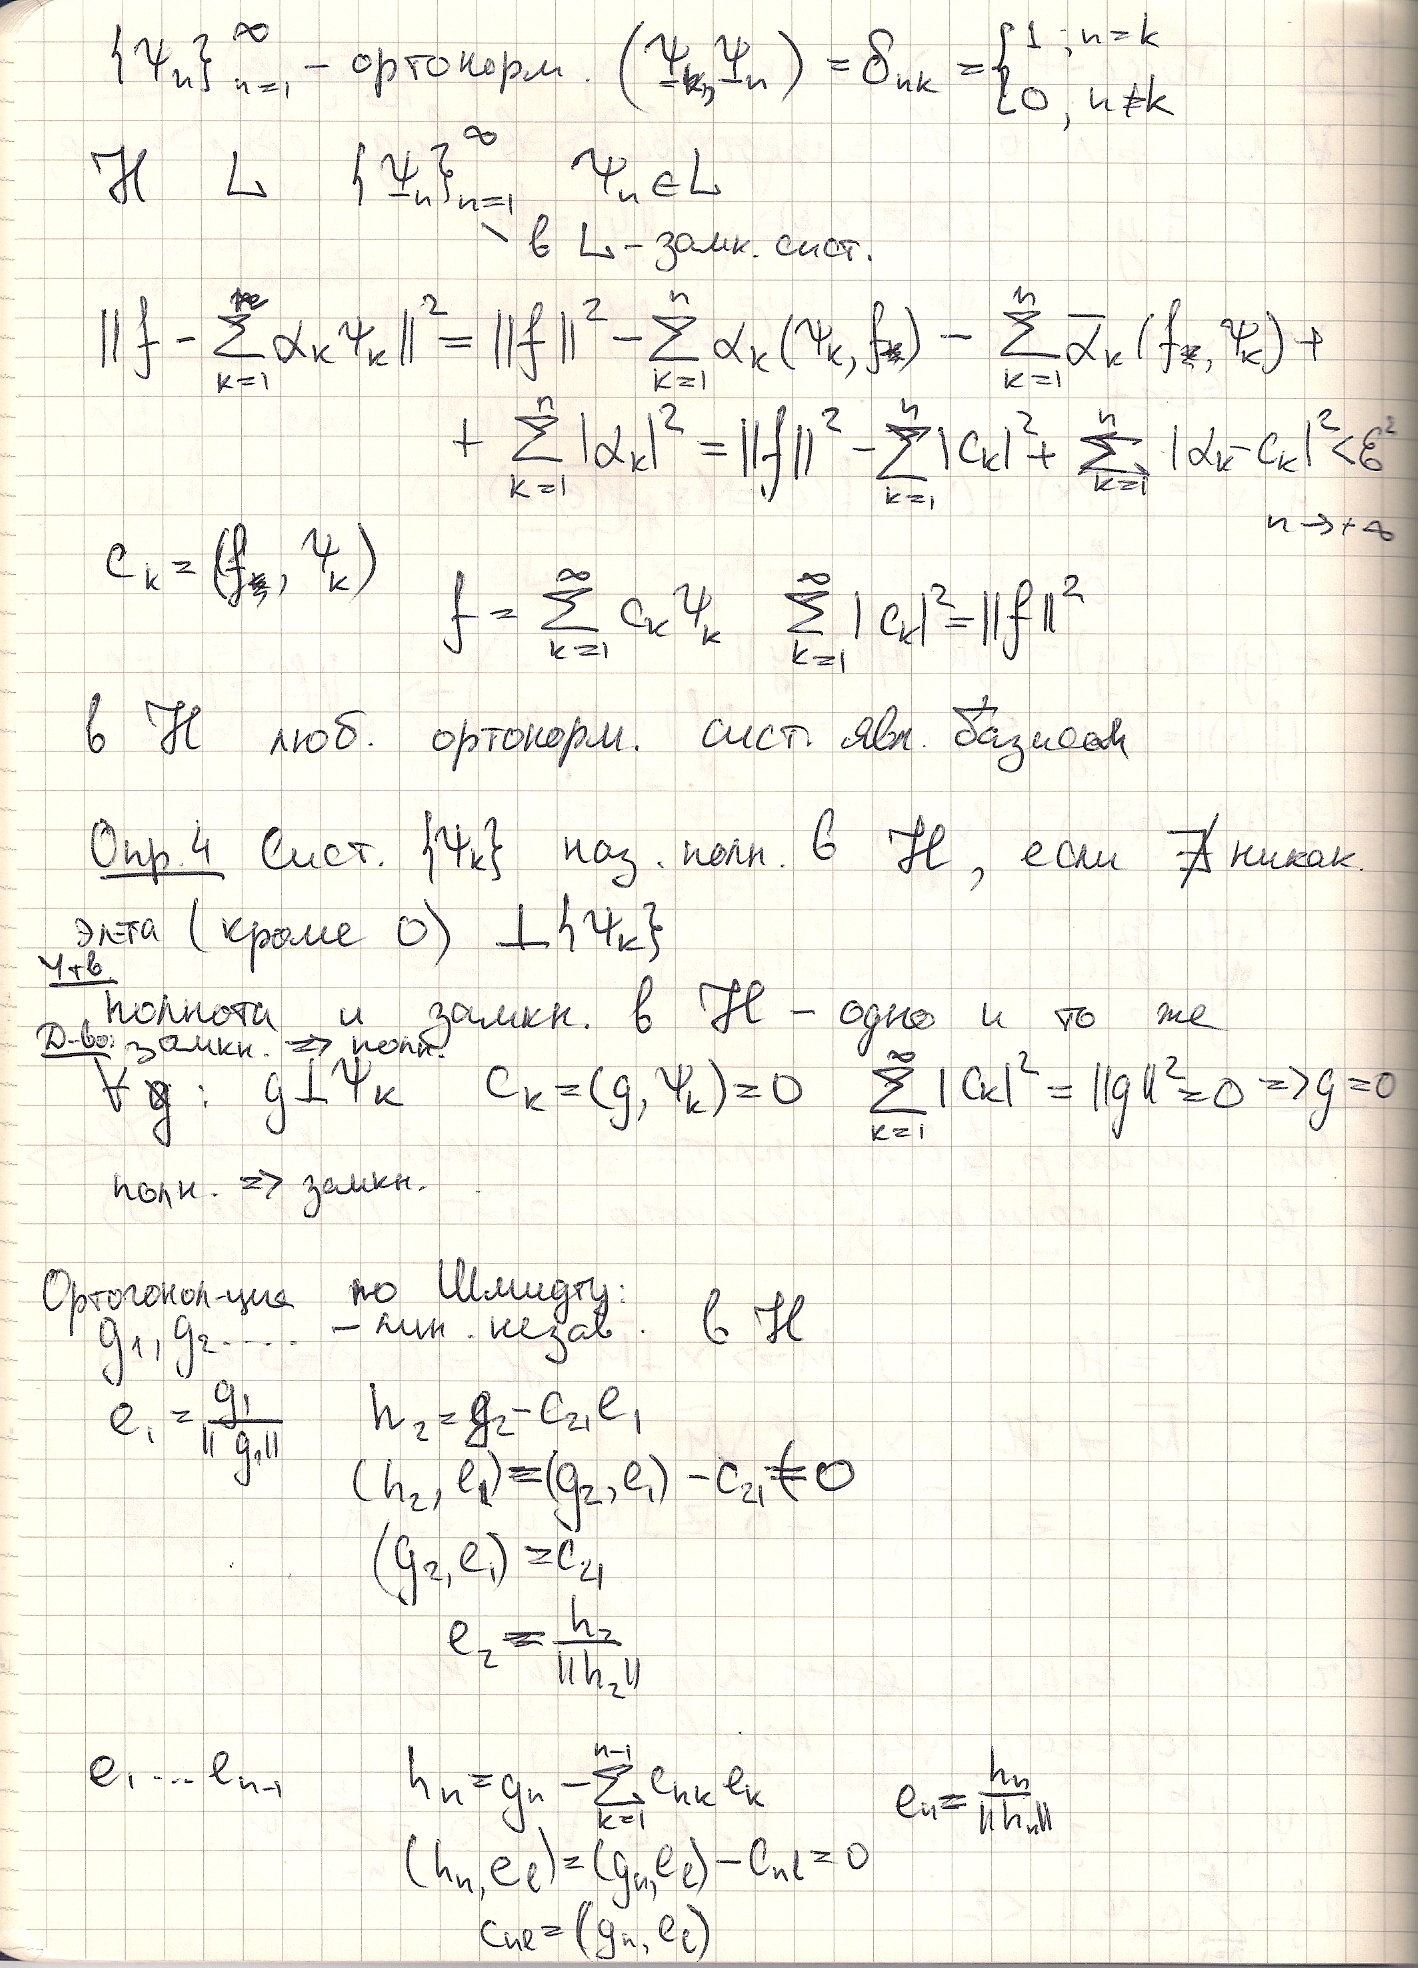 {Ψn}_{n=1}^∞ – ортонорм. (Ψk, Ψn) = δnk = {1 ; n=k
0 ; n≠k
ℋ L {Ψn}_{n=1}^∞ Ψn ∈ L
\ в L – замк. сист.
‖f – ∑_{k=1}^n αk Ψk‖² = ‖f‖² – ∑_{k=1}^n αk (Ψk, f) – ∑_{k=1}^n ᾱk (f, Ψk) +
+ ∑_{k=1}^n |αk|² = ‖f‖² – ∑_{k=1}^n |ck|² + ∑_{k=1}^n |αk – ck|² < ε²
n → +∞
ck = (f, Ψk)
f = ∑_{k=1}^∞ ck Ψk ∑_{k=1}^∞ |ck|² = ‖f‖²
в ℋ люб. ортонорм. сист. явл. базисом
Опр.4 Сист. {Ψk} наз. полн. в ℋ, если ∄ никак.
эл-та (кроме 0) ⊥ {Ψk}
Утв.
полнота и замкн. в ℋ – одно и то же
Д-во: замкн. => полн.
∀ g : g ⊥ Ψk ck = (g, Ψk) = 0 ∑_{k=1}^∞ |ck|² = ‖g‖² = 0 => g = 0
полн. => замкн.
Ортогонал-ция по Шмидту:
g1, g2 ..... – лин. незав. в ℋ
e1 = g1/‖g1‖ h2 = g2 – c21 e1
(h2, e1) = (g2, e1) – c21 = 0
(g2, e1) = c21
e2 = h2/‖h2‖
e1 ... en-1 hn = gn – ∑_{k=1}^{n-1} cnk ek en = hn/‖hn‖
(hn, el) = (gn, el) – cnl = 0
cnl = (gn, el)